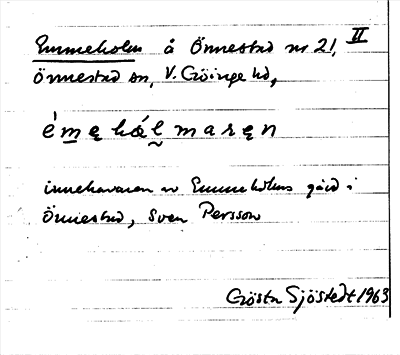 Emmeholm å Önnestad nr 21, II
Önnestad sn, V. Göinge hd,
é m ę há l m a r ę n
innehavaren av Emmeholms gård i
Önnestad, Sven Persson
Gösta Sjöstedt 1963